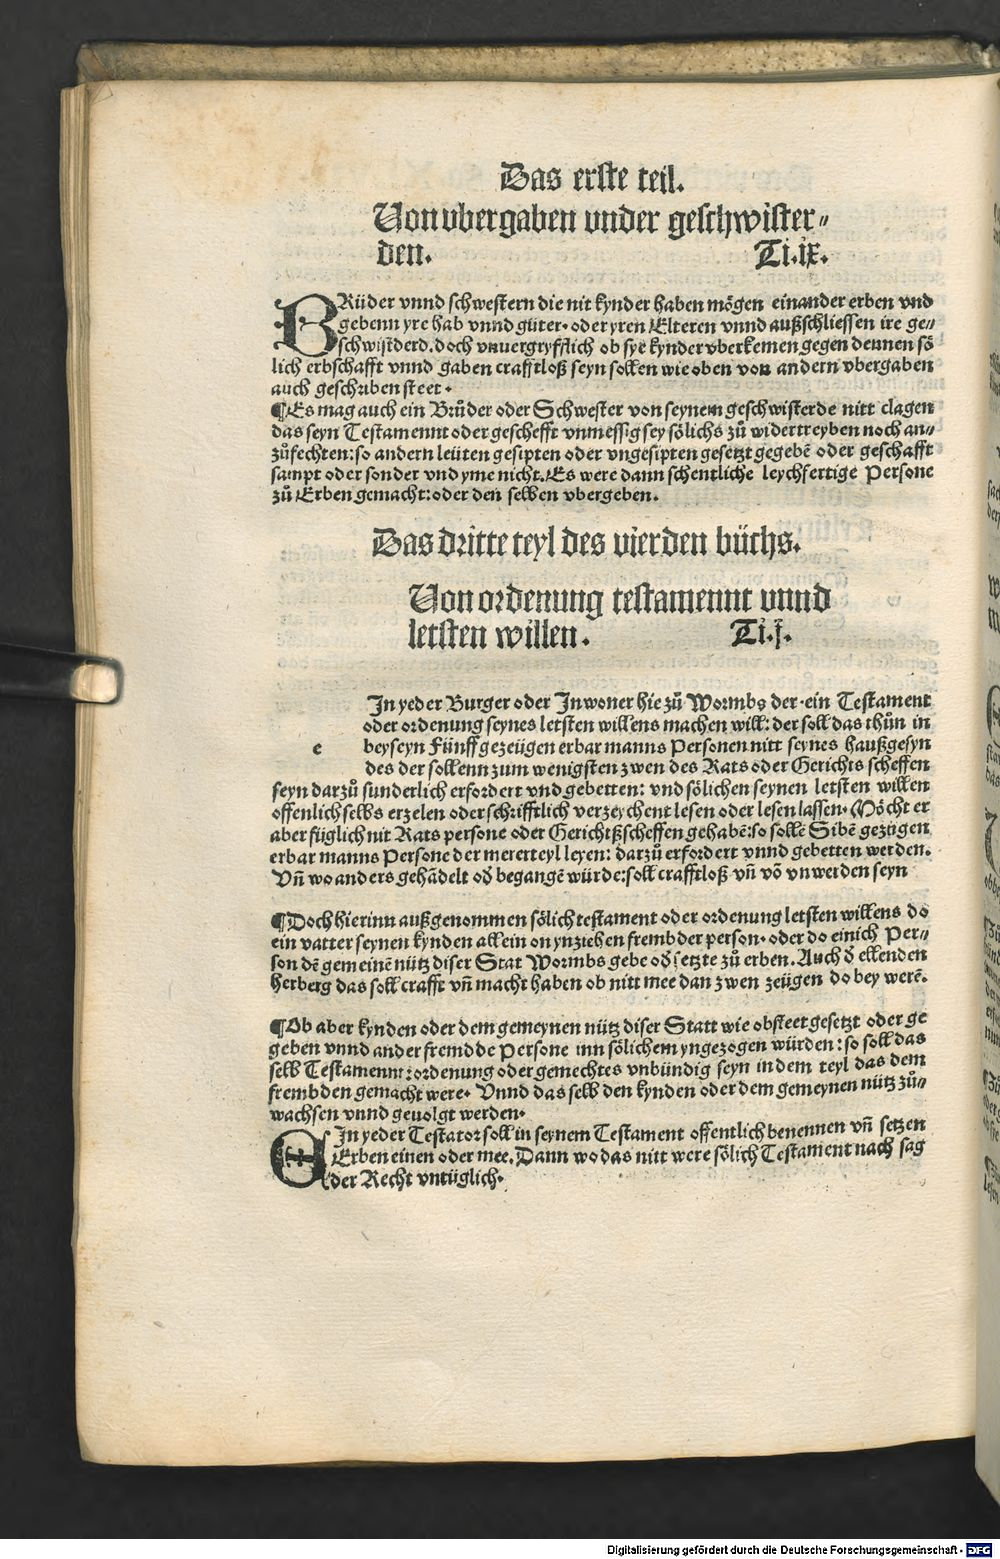 Das erste teil.
Von vbergaben vnder geschwister⸗
den. Ti.ix.
BRüder vnnd schwestern die nit kynder haben mögen einander erben vnd
gebenn yre hab vnnd güter· oder yren Elteren vnnd außschliessen ire ge⸗
schwisterd. doch vnuergryfflich ob sye kynder vberkemen gegen dennen sö
lich erbschafft vnnd gaben crafftloß seyn sollen wie oben von andern vbergaben
auch geschriben steet·
¶Es mag auch ein Brůder oder Schwester von seynem geschwisterde nitt clagen
das seyn Testamennt oder geschefft vnmessig sey sölichs zů widertreyben noch an⸗
zůfechten: so andern leüten gesipten oder vngesipten gesetzt gegebē oder geschafft
sampt oder sonder vnd yme nicht. Es were dann schentliche leychfertige Persone
zů Erben gemacht: oder den selben vbergeben.
Das dritte teyl des vierden büchs.
Von ordenung testamennt vnnd
letsten willen. Ti.j.
In yeder Burger oder Inwoner hie zů Wormbs der·ein Testament
oder ordenung seynes letsten willens machen will: der soll das thůn in
e beyseyn Fünff gezeügen erbar manns Personen nitt seynes haußgesyn
des der sollenn zum wenigsten zwen des Rats oder Gerichts scheffen
seyn darzů sunderlich erfordert vnd gebetten: vnd sölichen seynen letsten willen
offenlich selbs erzelen oder schrifftlich verzeychent lesen oder lesen lassen· Möcht er
aber füglich nit Rats persone oder Gerichtßscheffen gehabē: so sollē Sibē gezügen
erbar manns Persone der mererteyl leyen: darzů erfordert vnnd gebetten werden.
Vn̄ wo anders gehādelt od begangē würde: soll crafftloß vn̄ vō vnwerden seyn
¶Doch hierinn außgenommen sölich testament oder ordenung letsten willens do
ein vatter seynen kynden allein on ynziehen frembder person· oder do einich Per⸗
son dē gemeinē nütz diser Stat Wormbs gebe od setzte zů erben. Auch d ellenden
herberg das soll crafft vn̄ macht haben ob nitt mee dan zwen zeügen do bey werē.
¶Ob aber kynden oder dem gemeynen nütz diser Statt wie obsteet gesetzt oder ge
geben vnnd ander fremdde Persone inn sölichem yngezogen würden: so soll das
selb Testamennt: ordenung oder gemechtes vnbündig seyn in dem teyl das dem
frembden gemacht were· Vnnd das selb den kynden oder dem gemeynen nütz zů⸗
wachsen vnnd geuolgt werden·
EIn yeder Testator soll in seynem Testament offentlich benennen vn̄ setzen
Erben einen oder mee. Dann wo das nitt were sölich Testament nach sag
der Recht vntüglich·
Digitalisierung gefördert durch die Deutsche Forschungsgemeinschaft - DFG